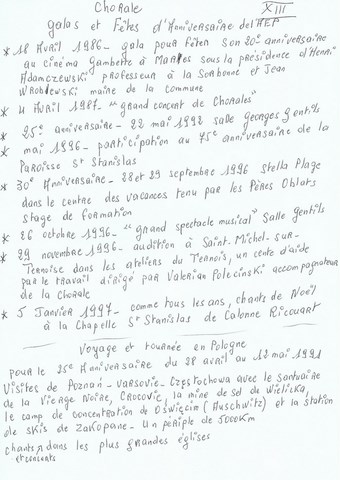 Chorale
XIII
galas et Fêtes d'Anniversaire de l'AEP
* 18 Avril 1986 - gala pour Fêter son 20e anniversaire
au cinéma Gambetta à Marles sous la présidence d'Henri
Adamczewski professeur à la Sorbonne et Jean
Wroblewski maire de la commune
* 4 Avril 1987 - "grand concert de Chorales"
* 25e anniversaire - 22 mai 1992 salle georges Gentils
* mai 1996 - participation au 75e anniversaire de la
Paroisse St Stanislas
* 30e Anniversaire - 28 et 29 septembre 1996 Stella Plage
dans le centre des vacances tenu par les Pères Oblats
stage de formation
* 26 octobre 1996 - "grand spectacle musical" Salle gentils
* 29 novembre 1996 - audition à Saint-Michel-sur-
Ternoise dans les ateliers du Ternois, un cente d'aide
par le travail dirigé par Valerian Polecinski accompagnateur
de la Chorale
* 5 Janvier 1997 - comme tous les ans, chants de Noël
à la Chapelle St Stanislas de Calonne Ricouart
Voyage et tournée en Pologne
pour le 25e Anniversaire du 28 avril au 12 mai 1991
Visites de Poznań - Varsovie - Częstochowa avec le sanctuaire
de la Vierge Noire, Cracovie, la mine de sel de Wielicka,
le camp de concentration de Oświęcim (Auschwitz) et la station
de skis de Zakopane - Un périple de 5000Km
chants dans les plus grandes églises
et concerts